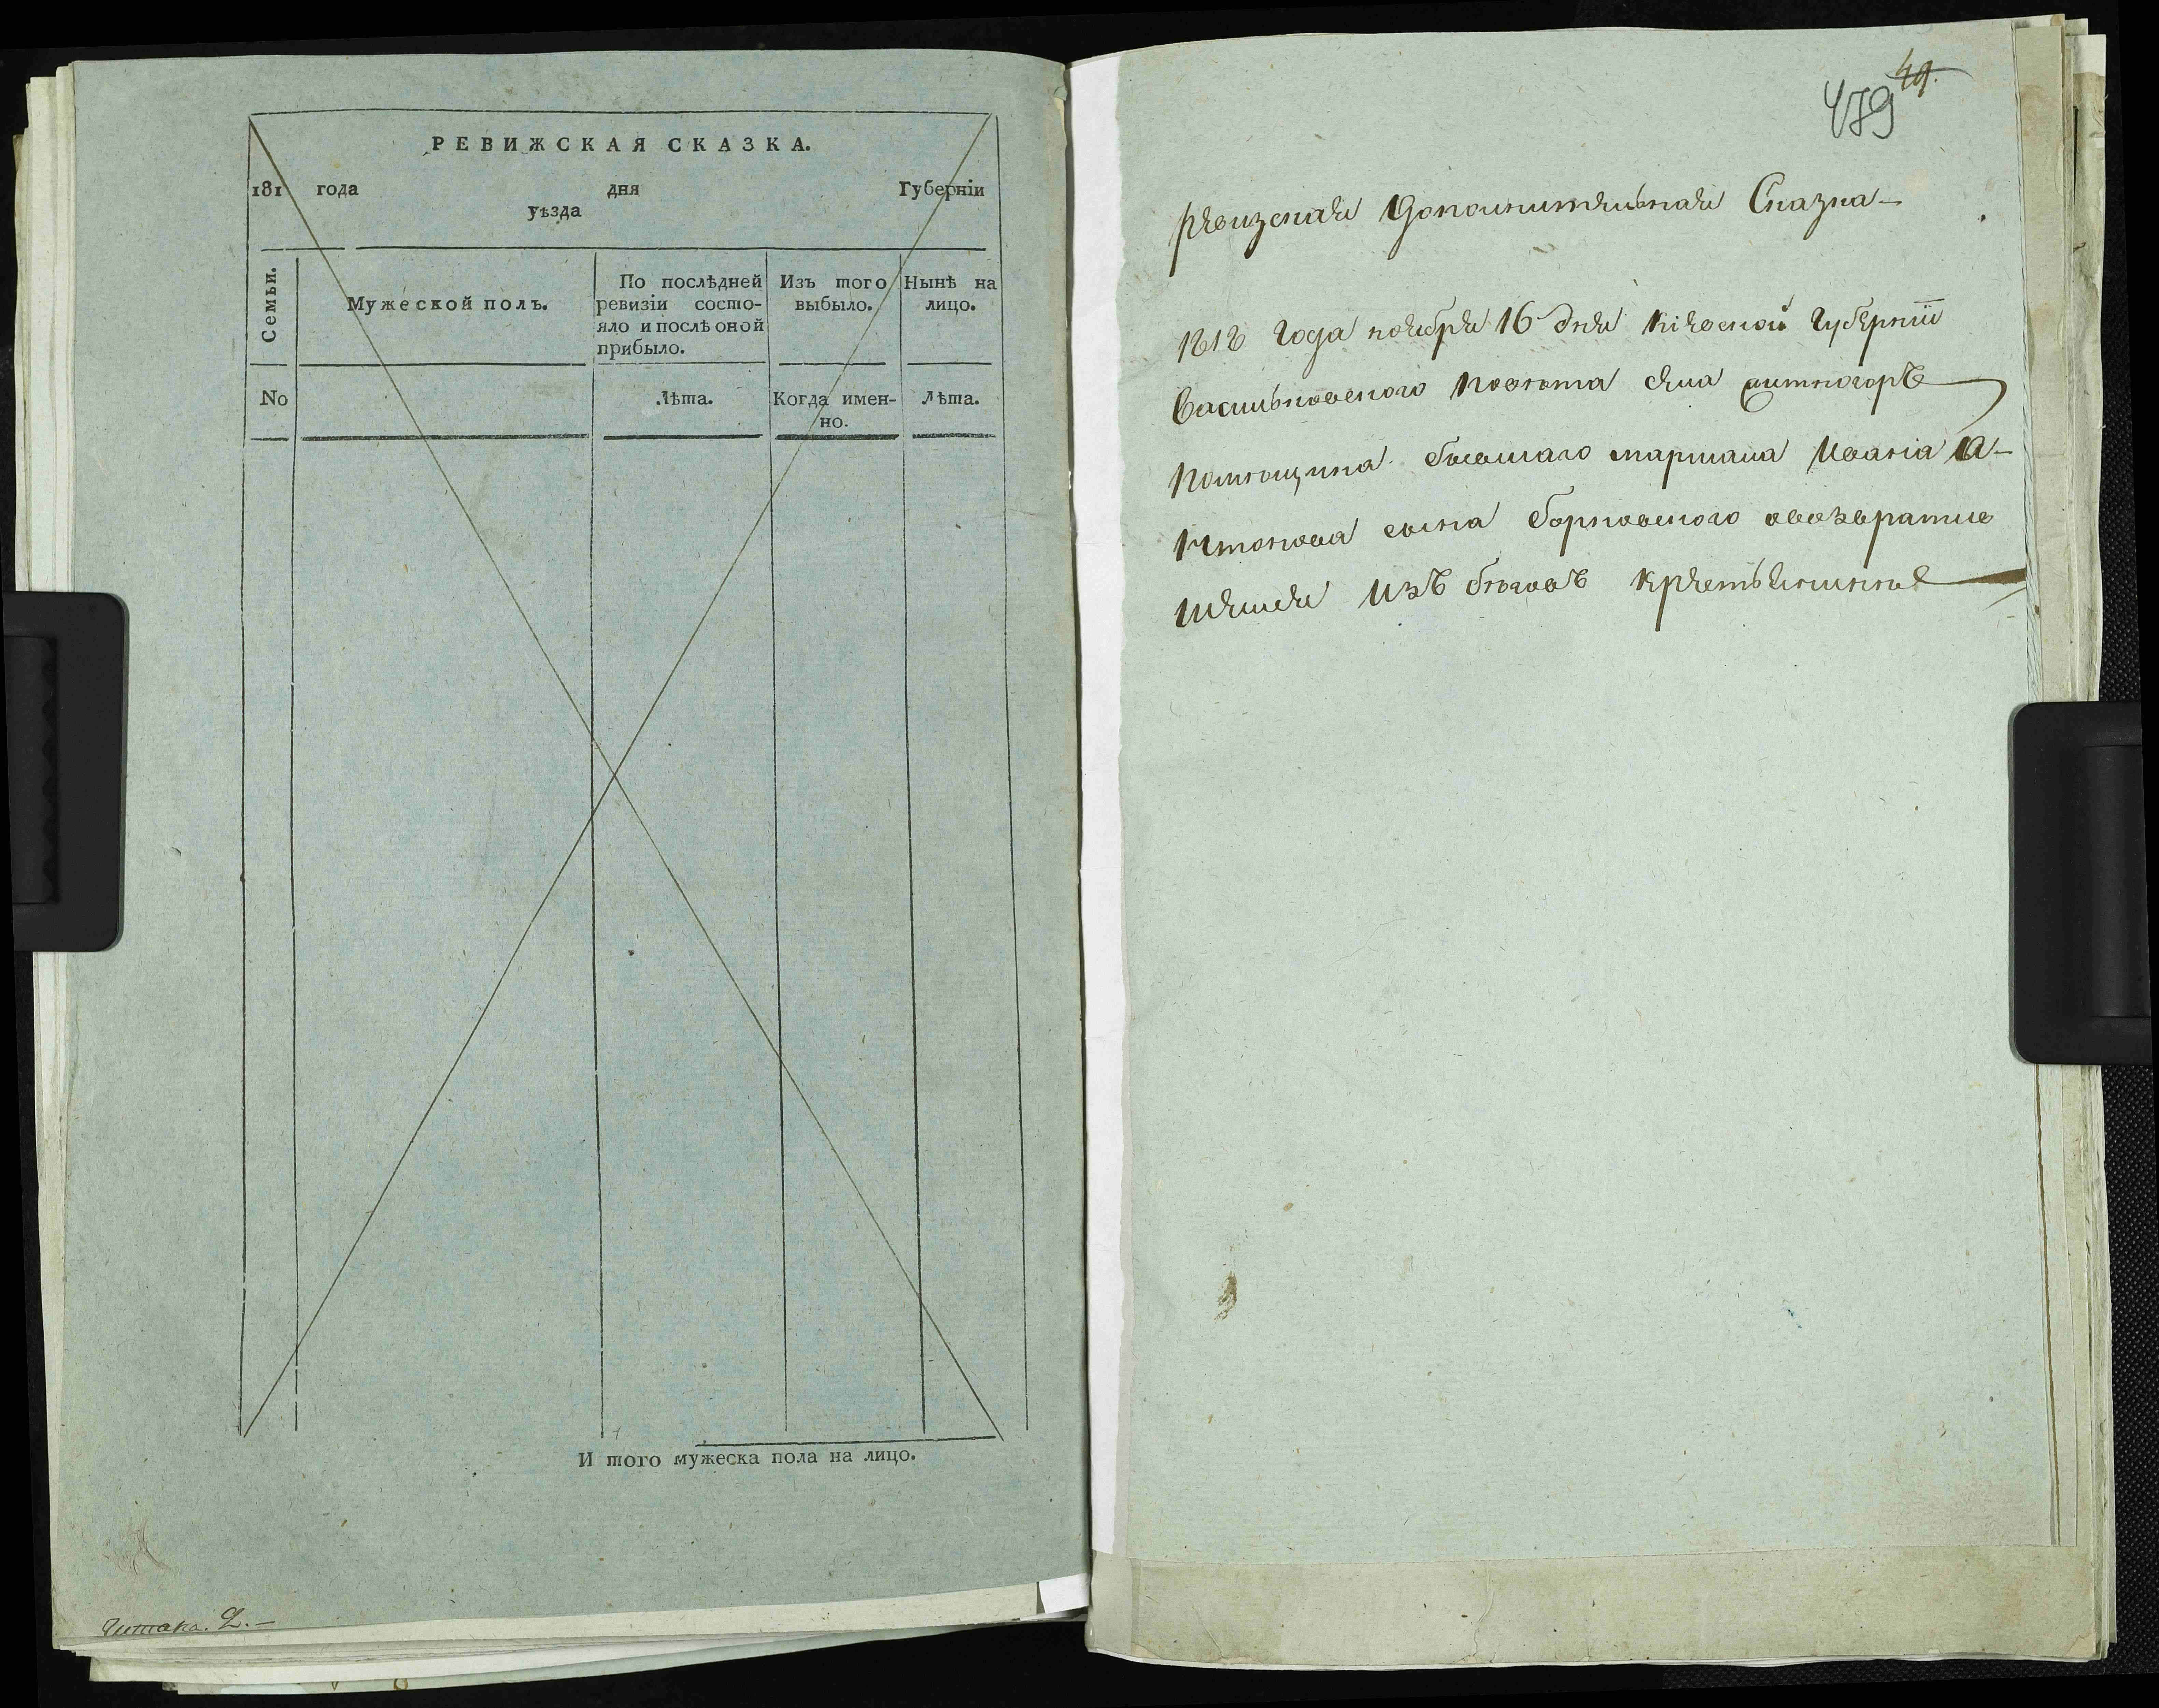 РЕВИЖСКАЯ СКАЗКА.
181 года дня Губернїи
уѣзда
Семьи.
Мужеской полъ.
По послѣдней
ревизїи состо-
яло и послѣ оной
прибыло.
Изъ того
выбыло.
Нынѣ на
лицо.
No
Лѣта.
Когда имен-
но.
Лѣта.
И того мужеска пола на лицо.
Читана.
49.
479
Ревизская Дополнительная Сказка
1818 года ноября 16 дня Кіевской губернїи
Васильковского повета села
помещика бывшаго маршала Ивана А-
нтонова сына Борковского овозвратив
шемся изъ бегов крестьянине